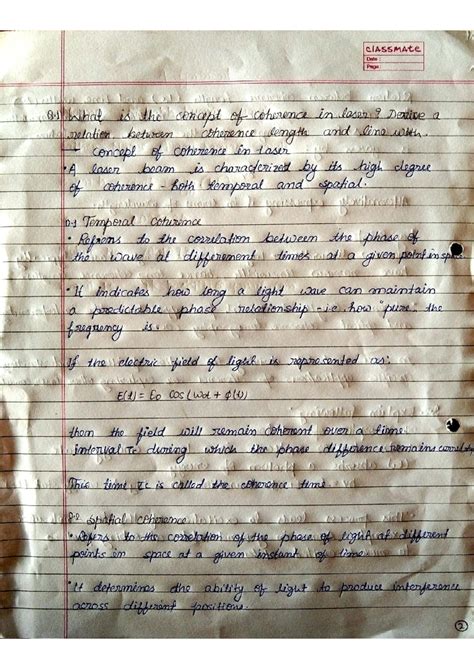 classmate
Date :
Page :
Q1 What is the concept of coherence in laser? Derive a
relation between coherence length and line width.
→ concept of coherence in laser
• A laser beam is characterized by its high degree
of coherence - both temporal and spatial.
Temporal Coherence
• Refrens to the correlation between the phase of
the wave at differenent times at a given point in space
• It indicates how long a light wave can maintain
a predictable phase relationship - i.e how "pure" the
freqrency is.
If the electric field of light is represented as:
E(t) = E0 cos(wt + φ(t))
then the field will remain coherent over a time
interval τc during which the phase difference remains
This time τc is called the coherence time
Spatial coherence
• Refers to the correlation of the phase of light at different
points in space at a given instant of time.
• It determines the ability of light to produce interference
across different positions.
2